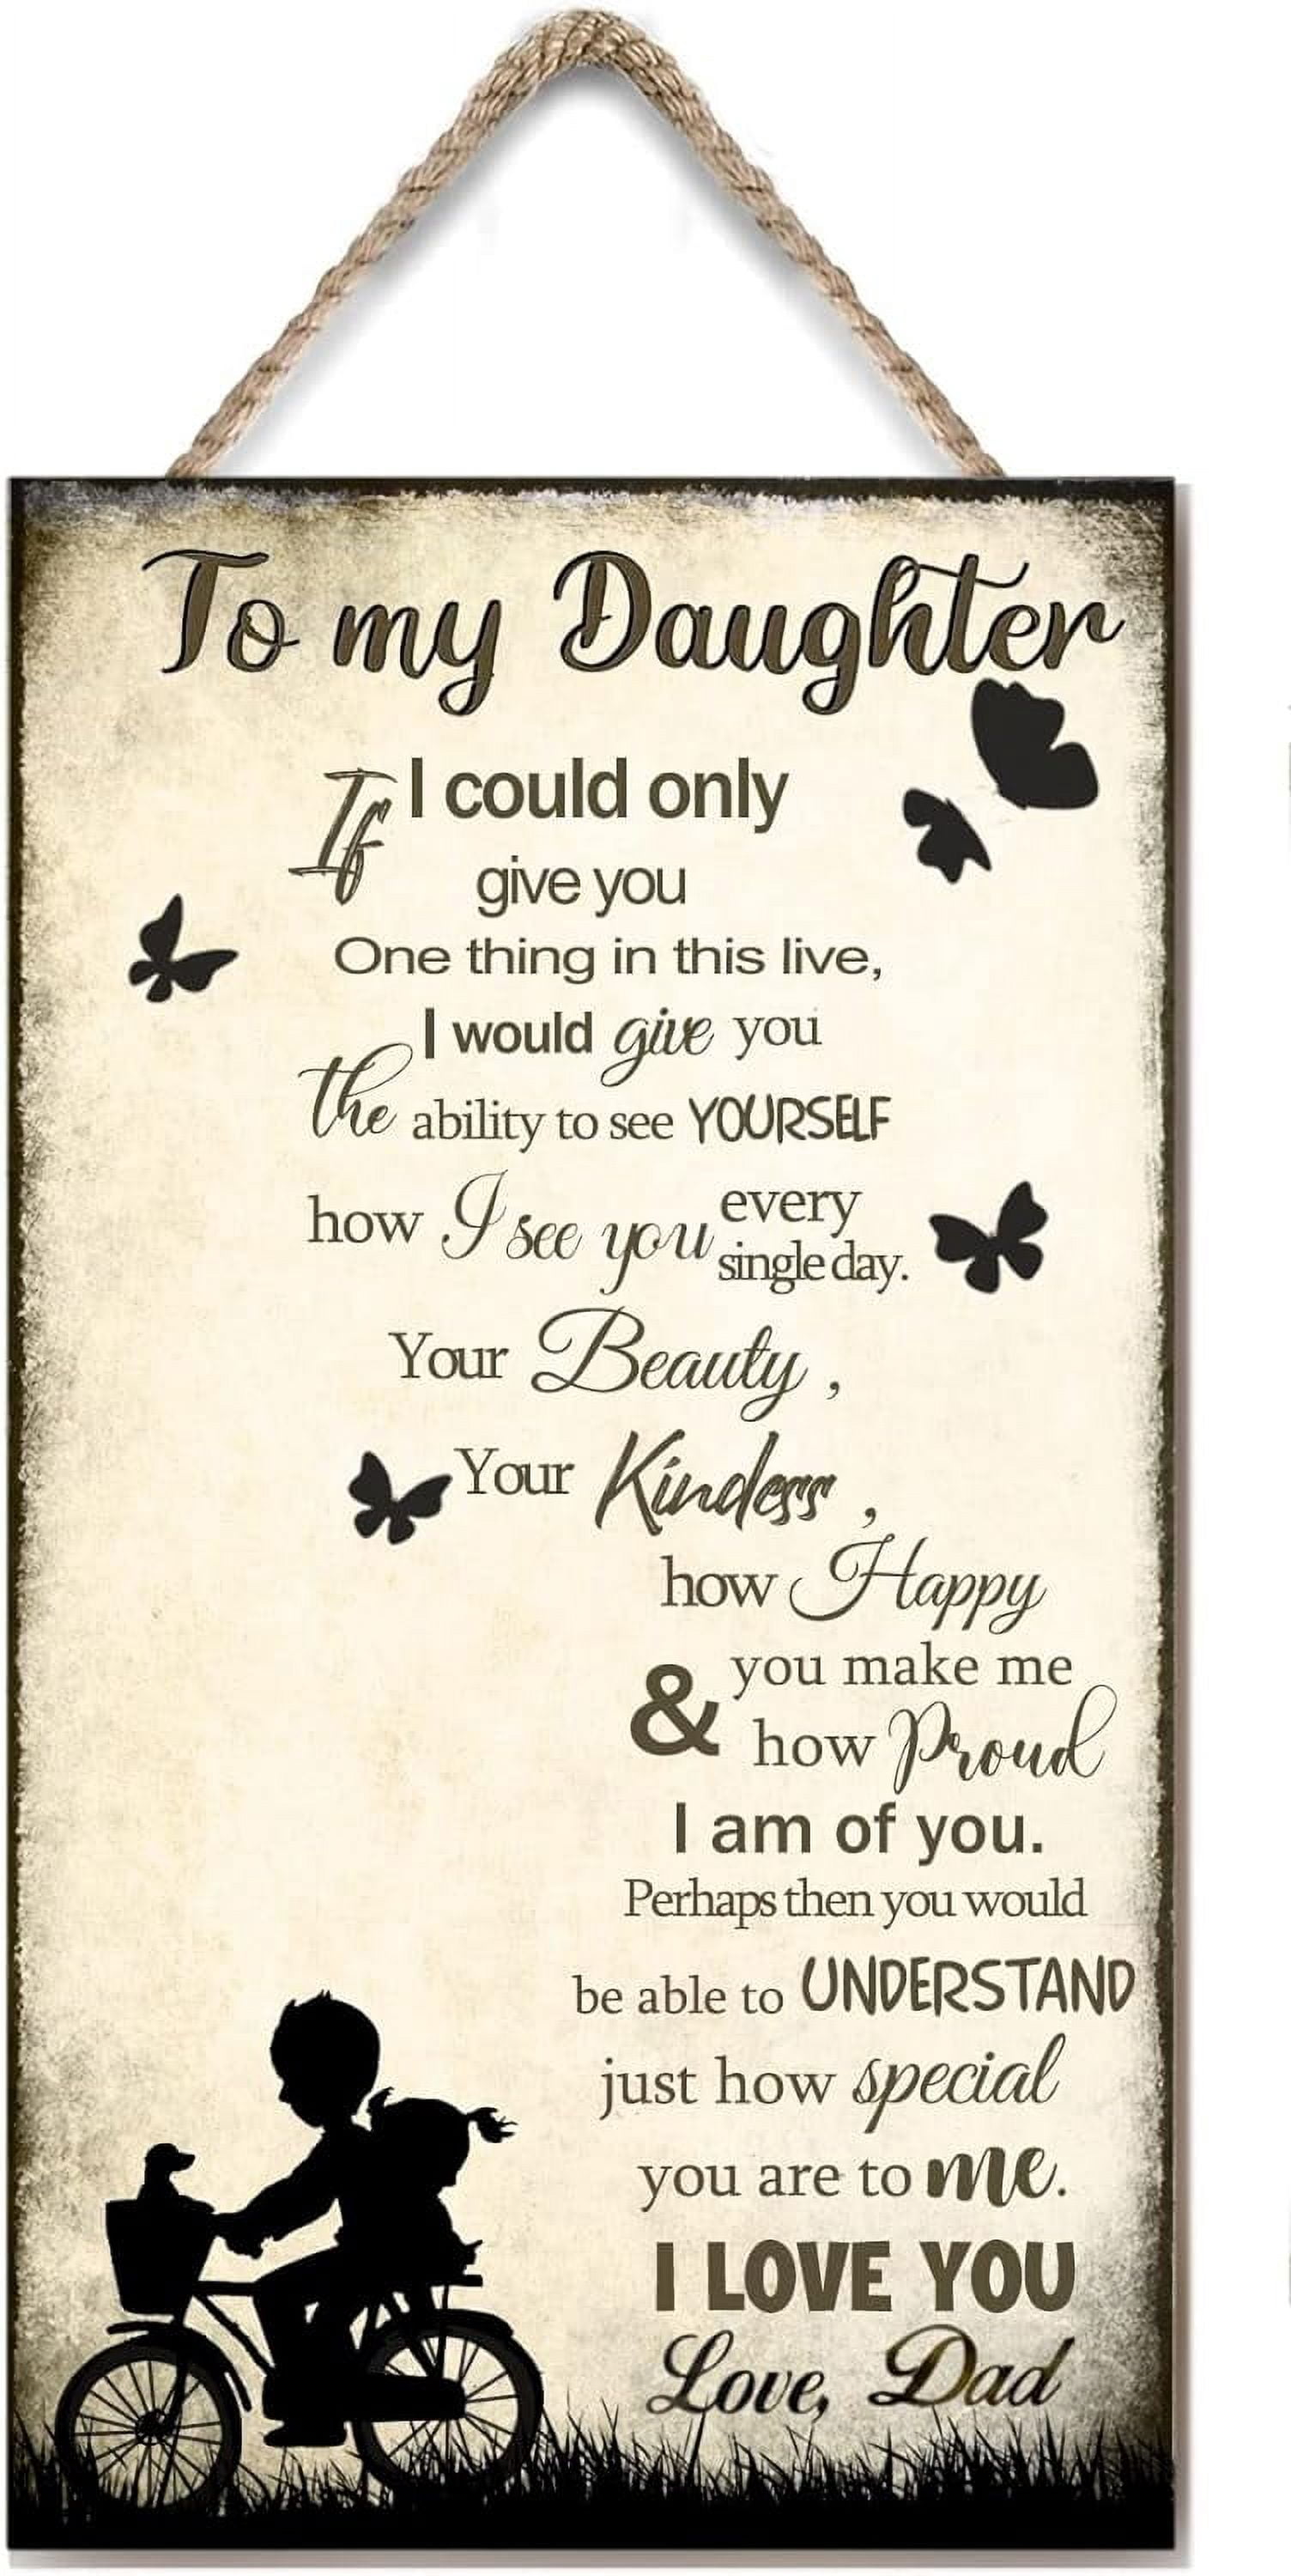 To my Daughter
If I could only
give you
One thing in this live,
I would give you
the ability to see YOURSELF
how I see you every
single day.
Your Beauty ,
Your Kindess ,
how Happy
you make me
& how Proud
I am of you.
Perhaps then you would
be able to UNDERSTAND
just how special
you are to me.
I LOVE YOU
Love, Dad